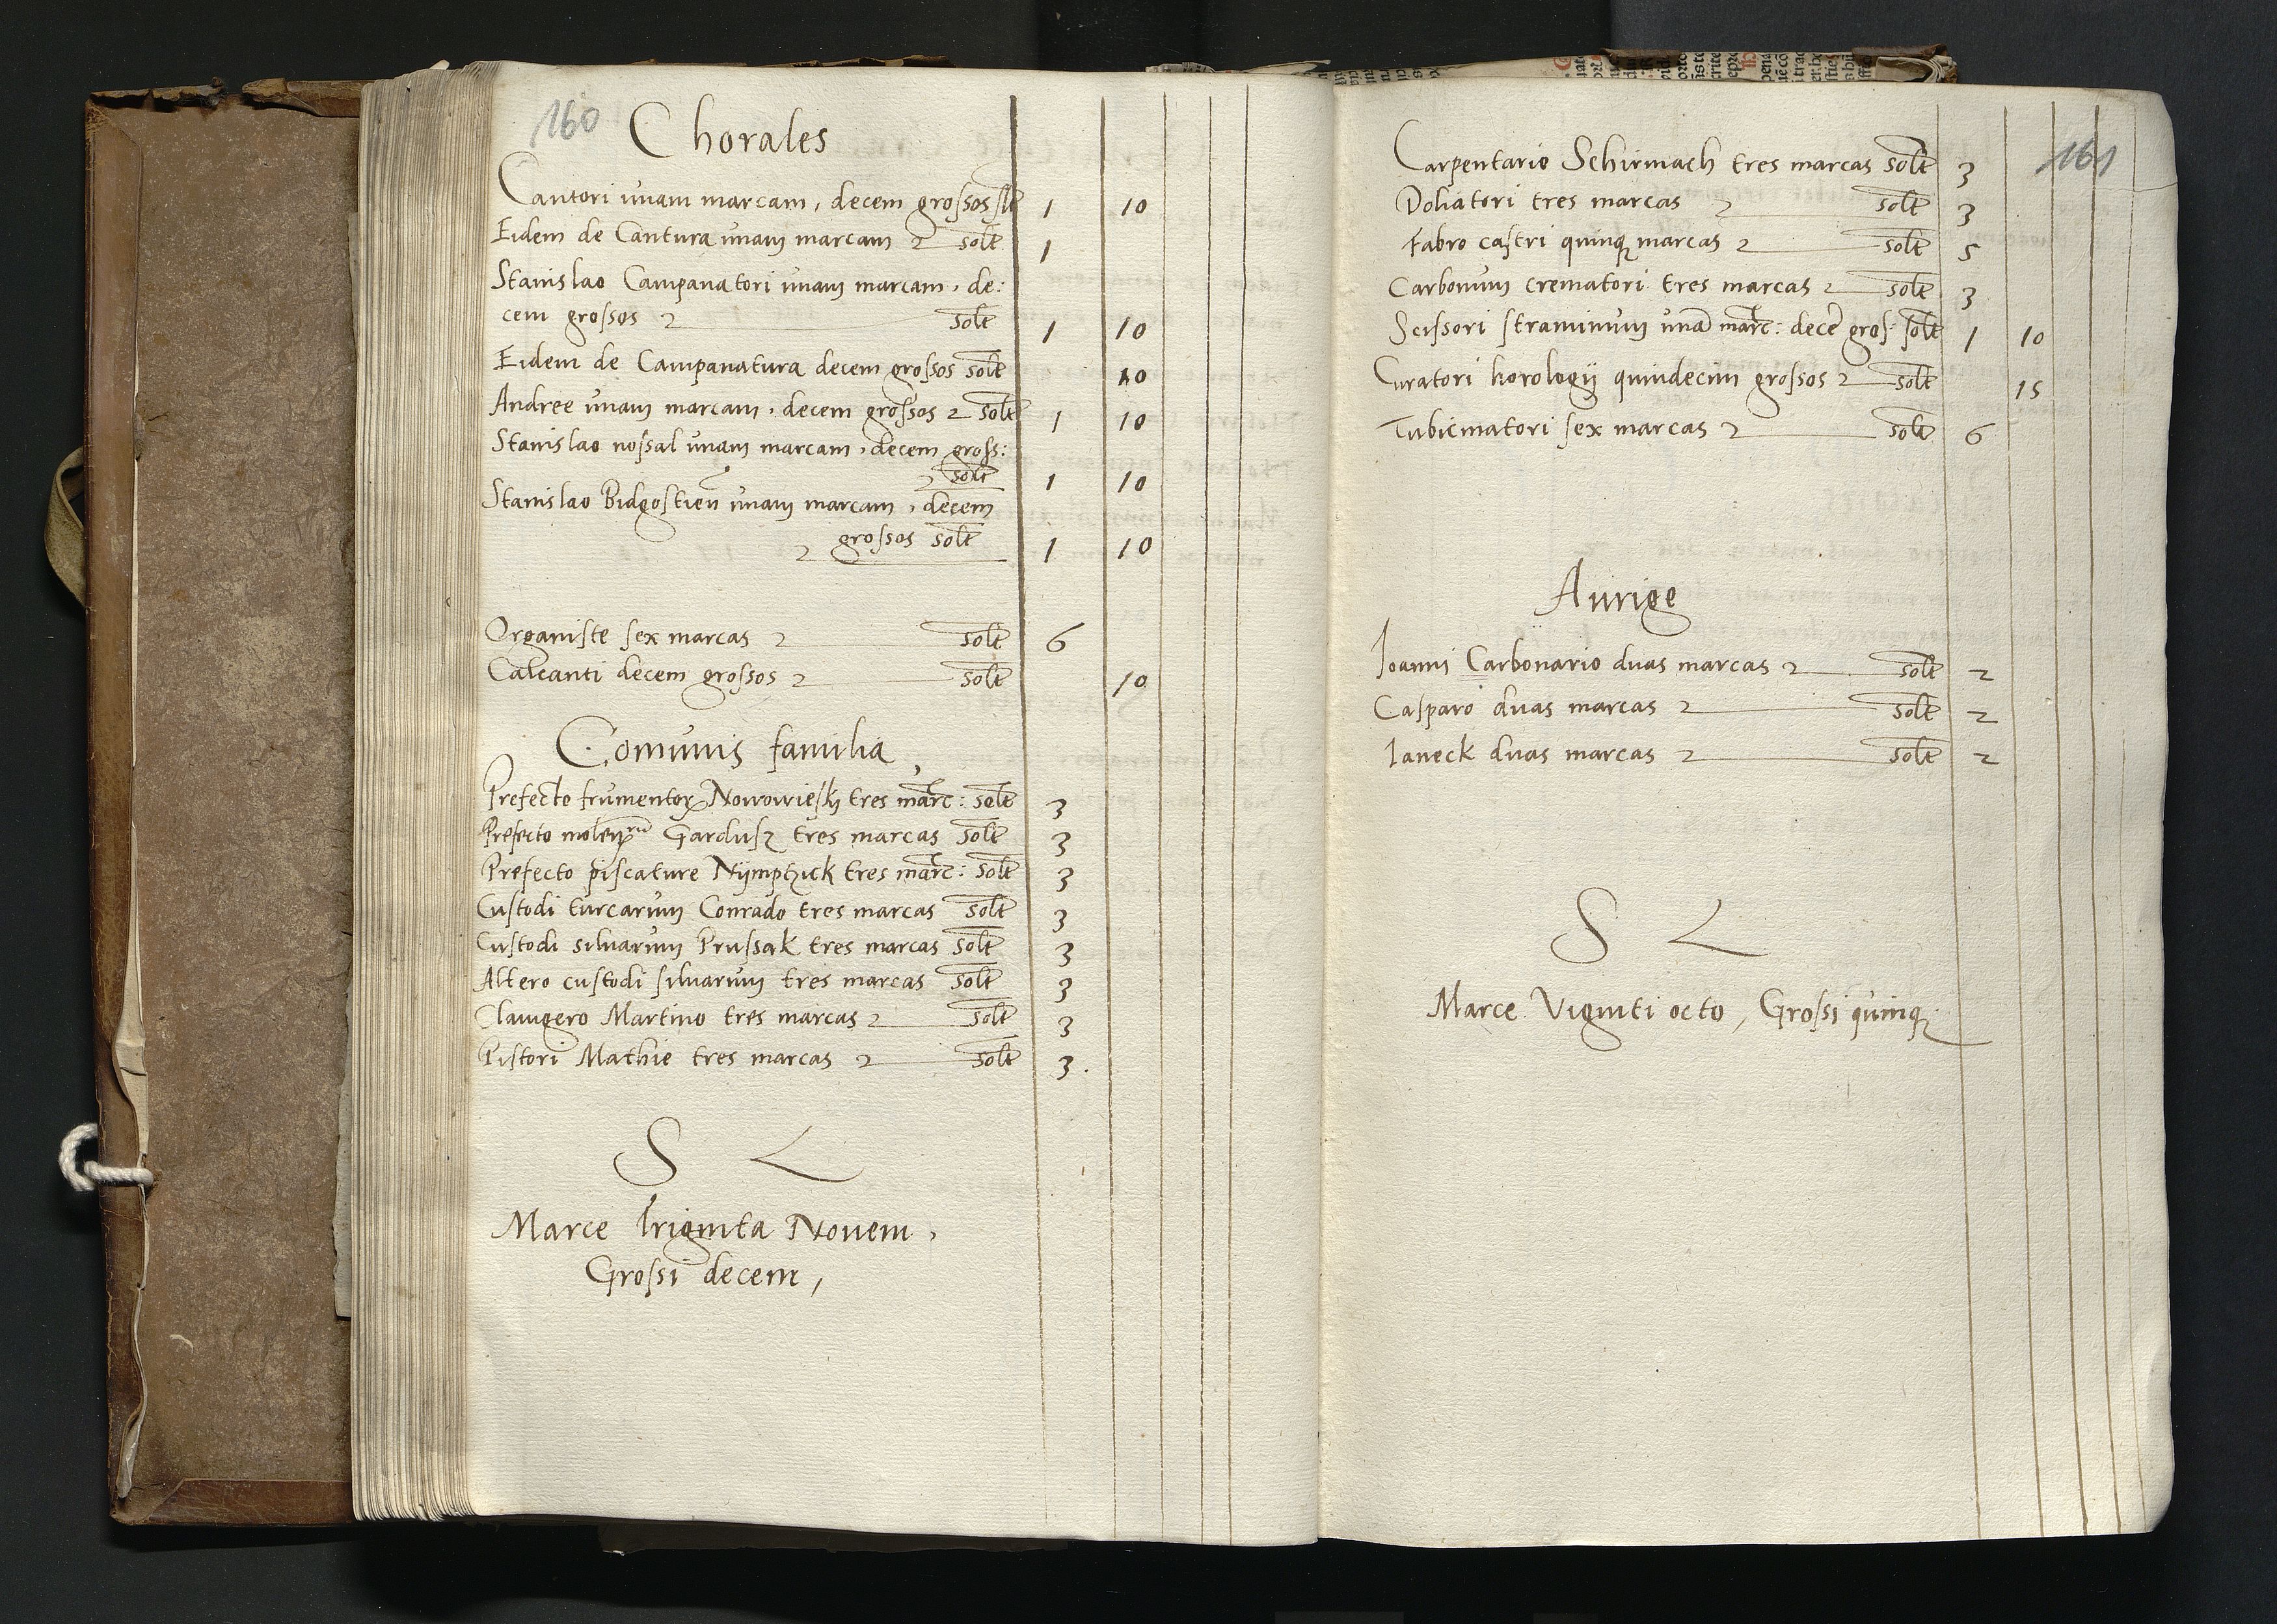 160
Chorales
Cantori unam marcam, decem grossos solt 1 10
Eidem de Cantura unam marcam solt 1
Stanislao Campanatori unam marcam, de:
cem grossos solt 1 10
Eidem de Campanatura decem grossos solt 10
Andree unam marcam, decem grossos solt 1 10
Stanislao nossal unam marcam, decem gross:
solt 1 10
Stanislao Bidgostien unam marcam, decem
grossos solt 1 10
Organiste sex marcas solt 6
Calcanti decem grossos solt 10
Comunis familia,
Prefecto frumentoꝝ Nowowiesky tres marc: solt 3
Prefecto Gardusz tres marcas solt 3
Prefecto piscature Nymptzick tres marc: solt 3
Custodi turcarum Conrado tres marcas solt 3
Custodi siluarum Prussak tres marcas solt 3
Altero custodi siluarum tres marcas solt 3
Clauigero Martino tres marcas solt 3
Pistori Mathie tres marcas solt 3.
S L
Marce Triginta Nouem,
Grossi decem,
161
Carpentario Schirmach tres marcas solt 3
Doliatori tres marcas solt 3
Fabro castri quinqꝫ marcas solt 5
Carbonum crematori tres marcas solt 3
Scissori straminum unā marc: decē gros: solt 1 10
Curatori horologij quindecim grossos solt 15
Tubicinatori sex marcas solt 6
Aurige
Joanni Carbonario duas marcas solt 2
Casparo duas marcas solt 2
Janeck duas marcas solt 2
S L
Marce Viginti octo, Grossi quinqꝫ